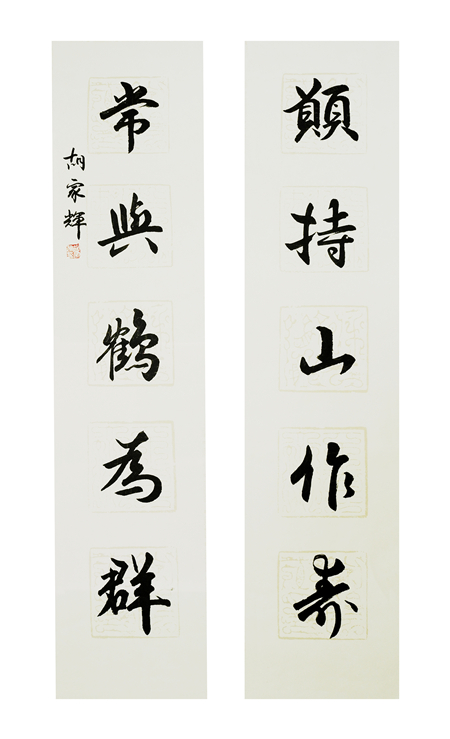 願持山作壽
常與鶴為群
胡家輝